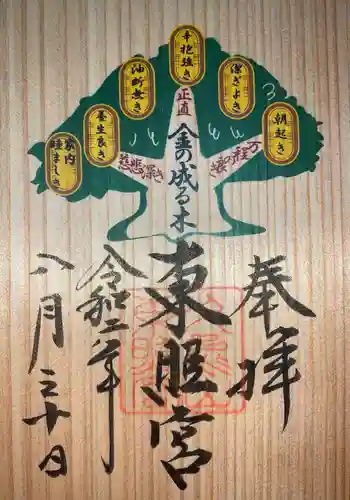 朝起き
潔ぎよき
辛抱強き
油断無き
養生良き
家内睦まじき
万程の良き
正直
慈悲深き
金の成る木
奉拝
東照宮
令和二年
八月三十日